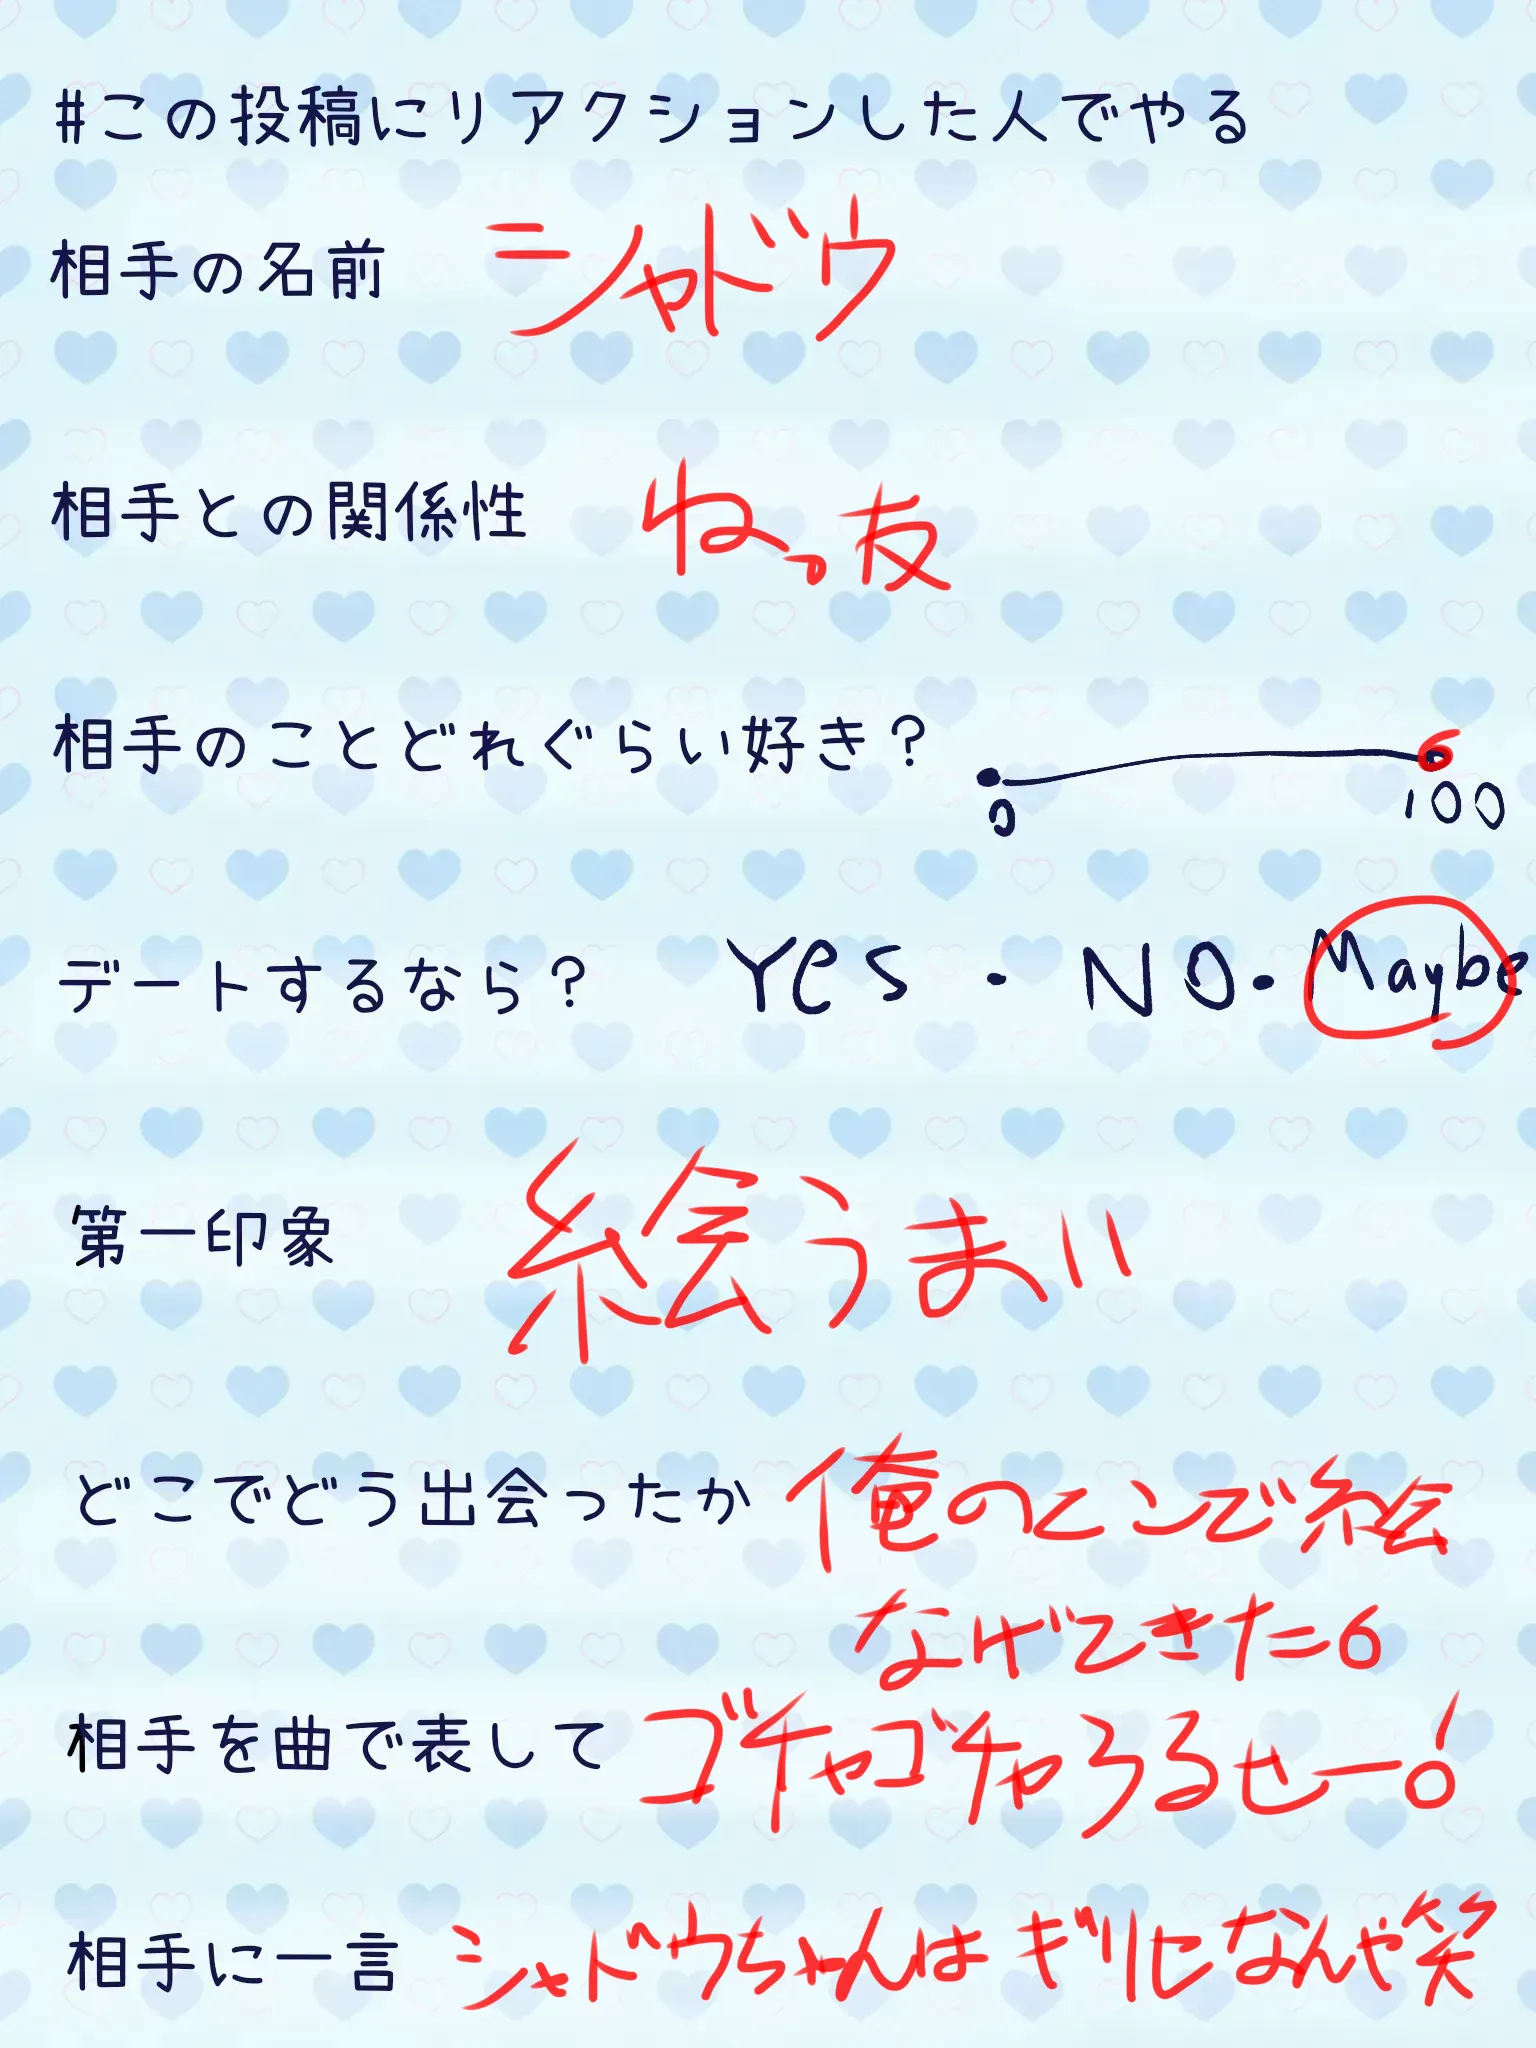 #この投稿にリアクションした人でやる
相手の名前 シャドウ
相手との関係性 ねっ友
相手のことどれぐらい好き？
0 100
デートするなら？ Yes・NO・Maybe
第一印象 絵うまい
どこでどう出会ったか 俺のとこで絵
なげてきた6
相手を曲で表して ゴチャゴチャうるせー!
相手に一言 シャドウちゃんは なんや笑